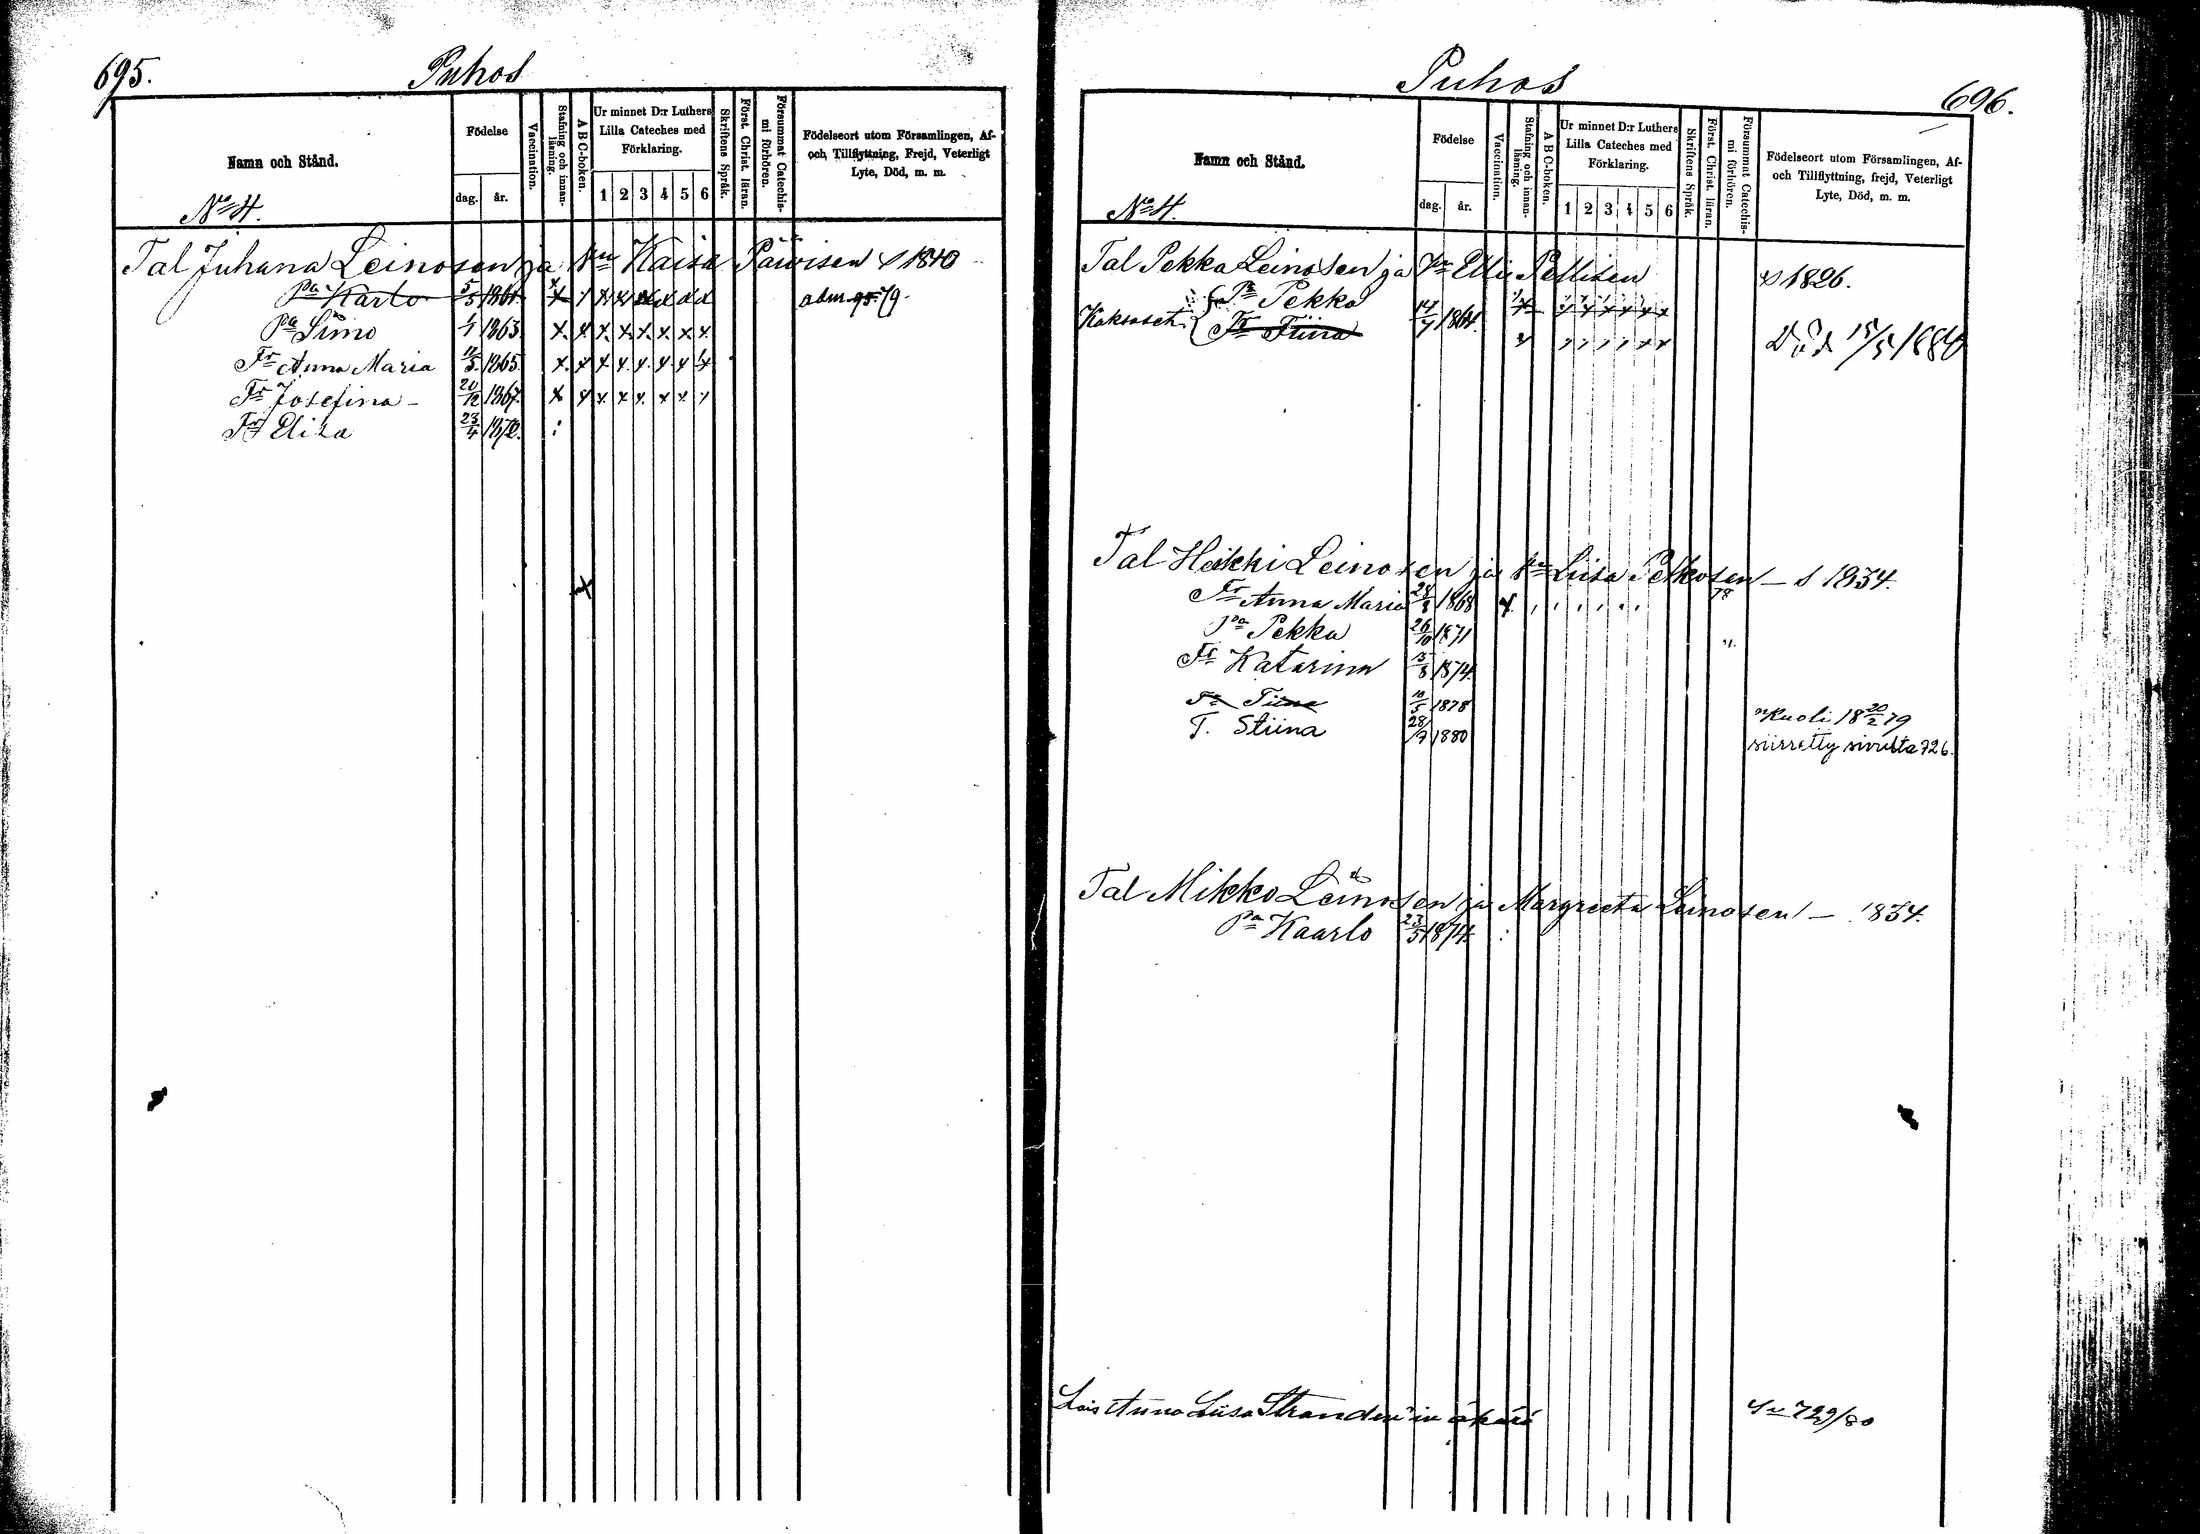 695.
Puhos
Namn och Stånd.
Födelse
dag.
år.
Vaccination.
Stafning och innanläsning.
A B C-boken.
Ur minnet D:r Luthers
Lilla Cateches med
Förklaring.
1 2 3 4 5 6
Skriftens Språk.
Först. Christ. läran.
Försummat Catechismi förhören.
Födelseort utom Församlingen, Af-
och Tillflyttning, Frejd, Veterligt
Lyte, Död, m. m.
No 4.
Tal Juhana Leinosen ja Kaisa Päivisen s 1840
Pa Karlo 5/5 1861 adm.
Pa Simo 1863
Fr Anna Maria 1865.
Fr Josefina 20/12 1867.
Fr Eliza 23/4 1872.
Puhos
696.
Namn och Stånd.
Födelse
dag.
år.
Vaccination.
Stafning och innanläsning.
A B C-boken.
Ur minnet D:r Luthers
Lilla Cateches med
Förklaring.
1 2 3 4 5 6
Skriftens Språk.
Först. Christ. läran.
Försummat Catechismi förhören.
Födelseort utom Församlingen, Af-
och Tillflyttning, frejd, Veterligt
Lyte, Död, m. m.
No 4.
Tal Pekka Leinosen ja Elli Pellisen s 1826.
Pa Pekka
Kaksoset. 1864.
Fr Tiina Död 15/5 1880
Tal Heikki Leinosen ja Liisa Petkosen — s 1834.
Fr Anna Maria 28/8 1868 78
Pa Pekka 26/10 1871
Fr Katarina 15/8 1874.
Fr Tiina 10/5 1878 Kuoli 18 20/2 79
T. Stiina 28/7 1880 siirretty sivulta 726.
Tal Mikko Leinosen ja Margreeta Leinosen — 1834.
Pa Kaarlo 23/5 1874.
Lois Anna Liisa Stranden'in äpärä
729/80